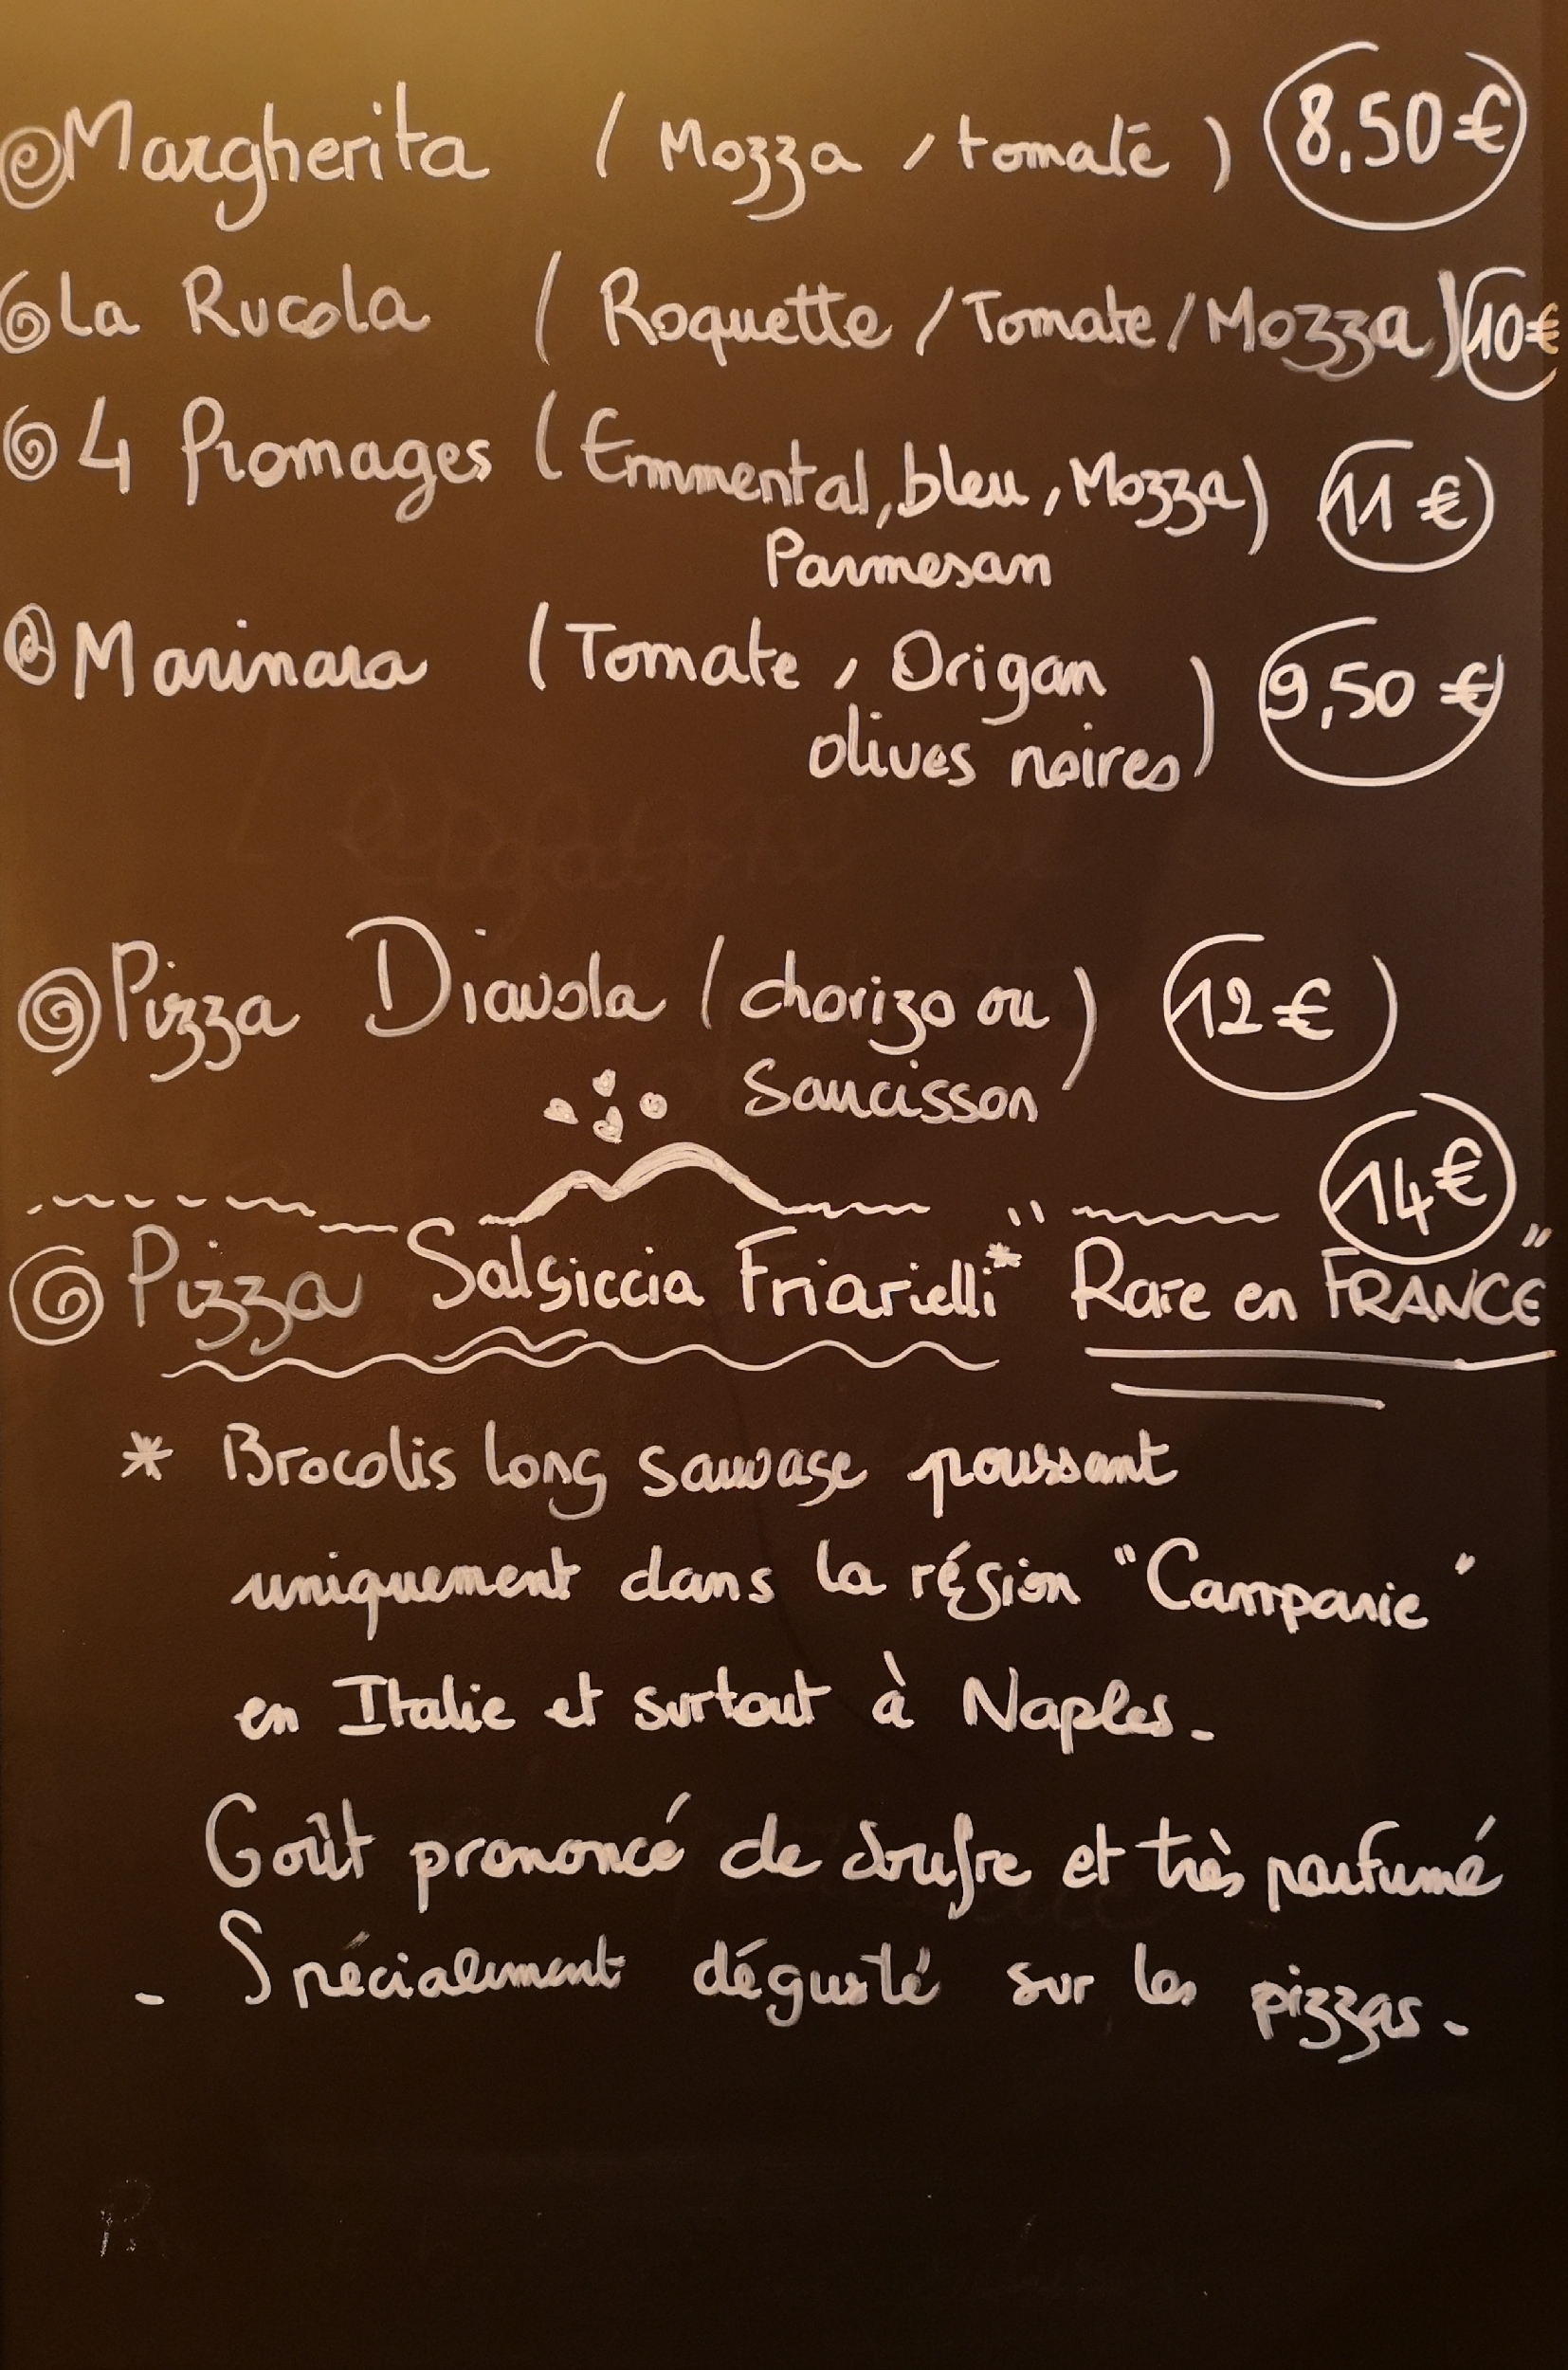 Margherita ( Mozza / tomate ) 8,50€
La Rucola ( Roquette / Tomate / Mozza ) 10€
4 fromages ( Emmental, bleu, Mozza ) 11€
Parmesan
Marinara ( Tomate, Origan 9,50 €
olives noires )
Pizza Diavola ( chorizo ou ) 12€
Saucisson
14€
Pizza Salsiccia Friarielli* "Rare en FRANCE"
* Brocolis long sauvage poussant
uniquement dans la région "Campanie"
en Italie et surtout à Naples.
Goût prononcé de soufre et très parfumé
- Spécialement dégusté sur les pizzas.